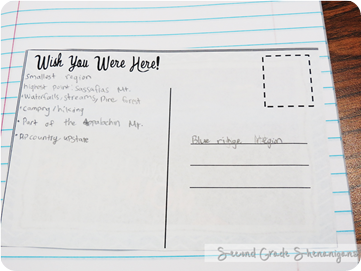 Wish You Were Here!
smallest region
higest point: Sassafras Mt.
• Waterfalls, streams, Pine forest
• Camping / hiking
• Part of the Appalaches Mt.
• up state
Blue ridge
Second Grade Shenanigans